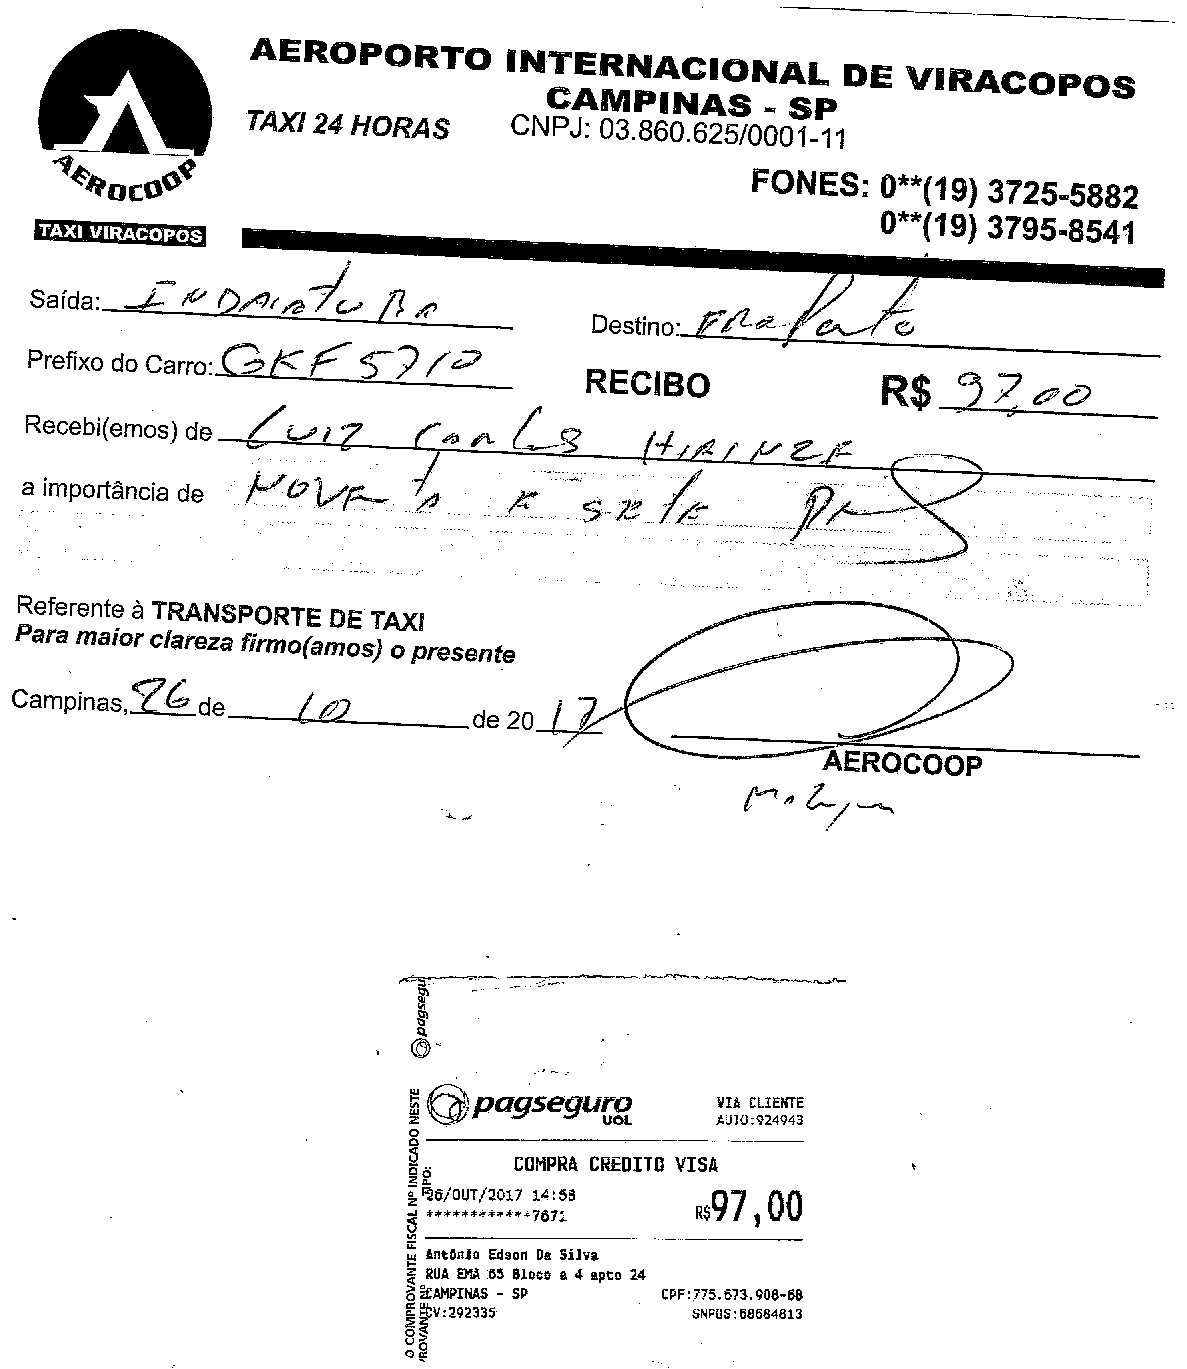 AEROPORTO INTERNACIONAL DE VIRACOPOS
CAMPINAS - SP
TAXI 24 HORAS CNPJ: 03.860.625/0001-11
AEROCOOP
FONES: 0**(19) 3725-5882
0**(19) 3795-8541
TAXI VIRACOPOS
Saída: INDAIATUBA Destino:
Prefixo do Carro: GKF 5710 RECIBO R$ 97,00
Recebi(emos) de LUIZ CARLOS HEINZE
a importância de NOVENTA E SETE
Referente à TRANSPORTE DE TAXI
Para maior clareza firmo(amos) o presente
Campinas, 26 de 10 de 2017
AEROCOOP
pagseguro
O COMPROVANTE FISCAL Nº INDICADO NESTE
pagseguro
UOL
VIA CLIENTE
AUTO:924943
COMPRA CREDITO VISA
26/OUT/2017 14:58
************7671 R$97,00
Antônio Edson Da Silva
RUA EMA 65 Bloco a 4 apto 24
CAMPINAS - SP CPF:775.673.908-68
CV:292335 SNPOS:68684813